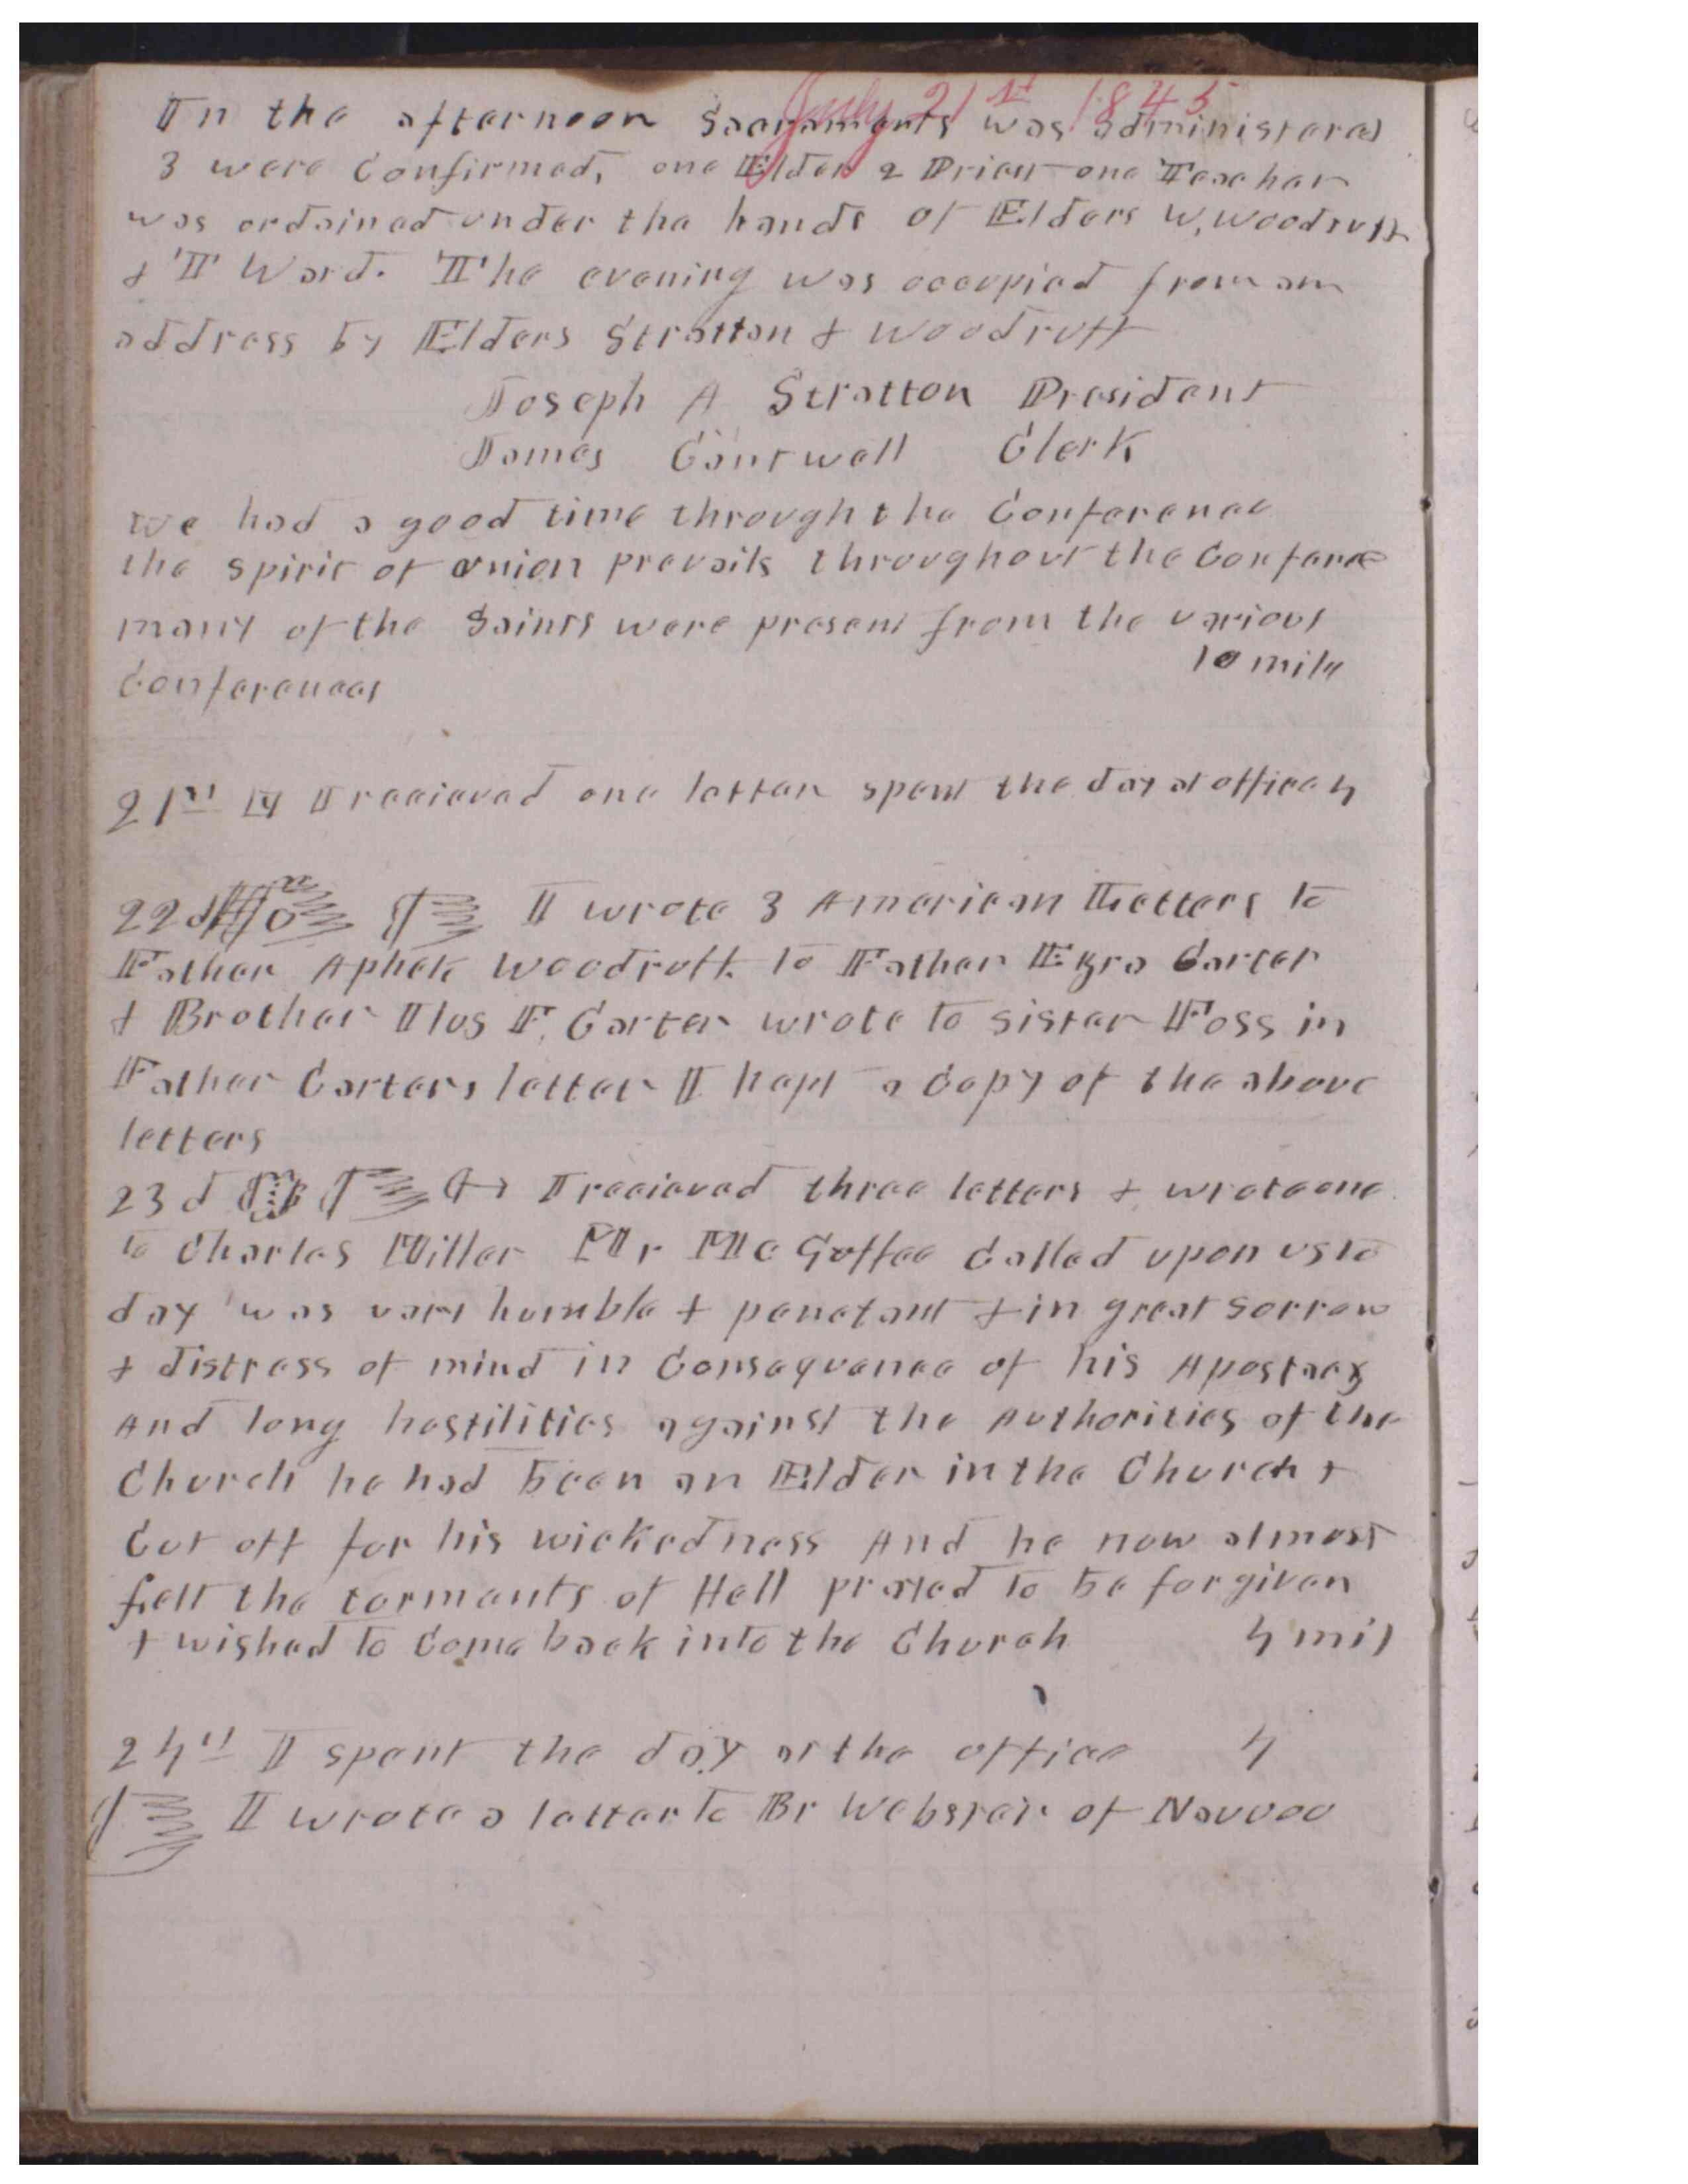 July 21st 1845
In the afternoon Sacraments was administered
3 were Confirmed, one Elder 2 Priest one Teacher
was ordained under the hands of Elders W, Woodruff
& T Ward. The evening was occupied from an
address by Elders Stratton & Woodruff
Joseph A Stratton President
James Cantwell Clerk
we had a good time through the Conference
the spirit of union prevails throughout the Confere
many of the Saints were present from the various
10 mile
Conferences
21st I received one letter spent the day at office 4
22d I wrote 3 American Letters to
Father Aphek Woodruff. to Father Ezra Carter
& Brother Ilus F. Carter wrote to sister Foss in
Father Carters letter I kept a Copy of the above
letters
23d I received three letters & wrote one
to Charles Miller Mr McGuffee Called upon us to
day was vary humble & penetant & in great sorrow
& distress of mind in Consequence of his Apostacy
And long hostilities against the Authorities of the
Church he had been an Elder in the Church &
Cut off for his wickedness And he now almost
felt the torments of Hell prayed to be forgiven
& wished to Come back into the Church 4 mil
24th I spent the day at the office 4
I wrote a letter to Br Webster of Nauvoo